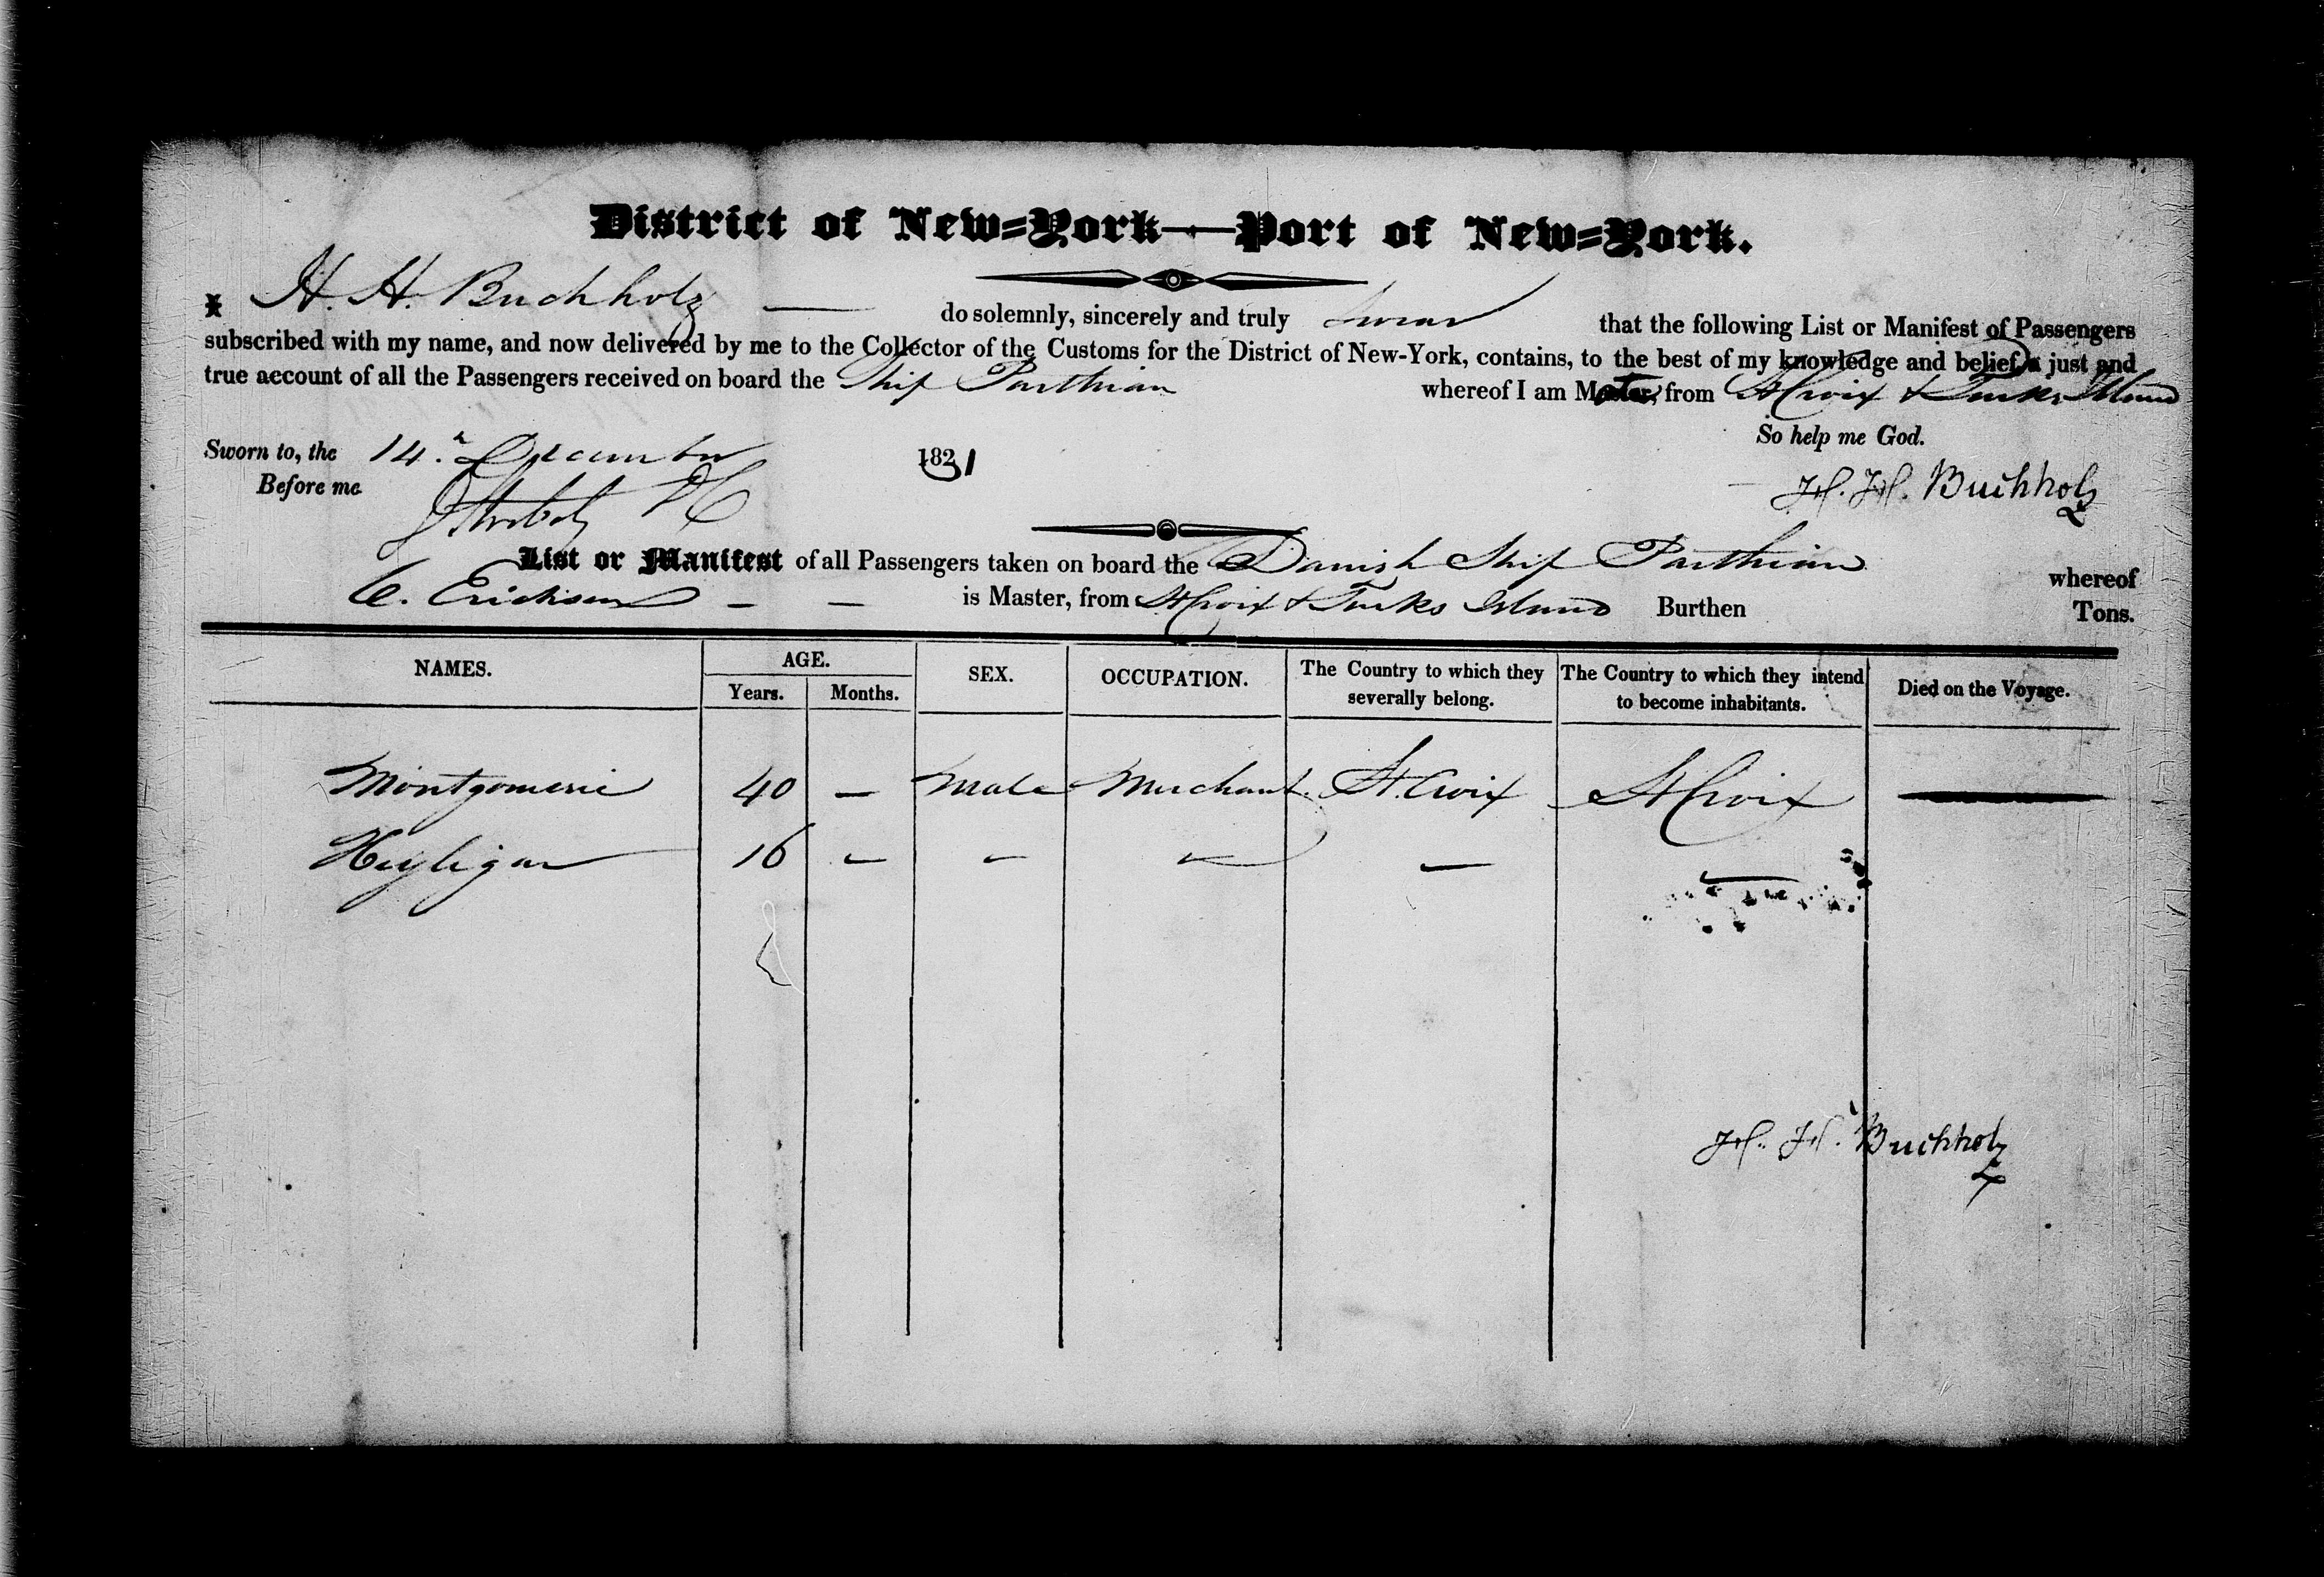 District of New=York—Port of New=York.
I H. H. Buchholz — do solemnly, sincerely and truly swear that the following List or Manifest of Passengers
subscribed with my name, and now delivered by me to the Collector of the Customs for the District of New-York, contains, to the best of my knowledge and belief, a just and
true account of all the Passengers received on board the Ship Parthian whereof I am Master, from St Croix & Turks Island
So help me God.
Sworn to, the 14.h December 1831
Before me
H. H. Buchholz
List or Manifest of all Passengers taken on board the Danish Ship Parthian whereof
C. Ericksen — — is Master, from St Croix & Turks Island Burthen Tons.
NAMES. AGE. SEX. OCCUPATION. The Country to which they severally belong. The Country to which they intend to become inhabitants. Died on the Voyage.
Years. Months.
Montgomerie 40 — Male Merchant St. Croix St Croix —
Heyligar 16 — — — — —
H. H. Buchholz